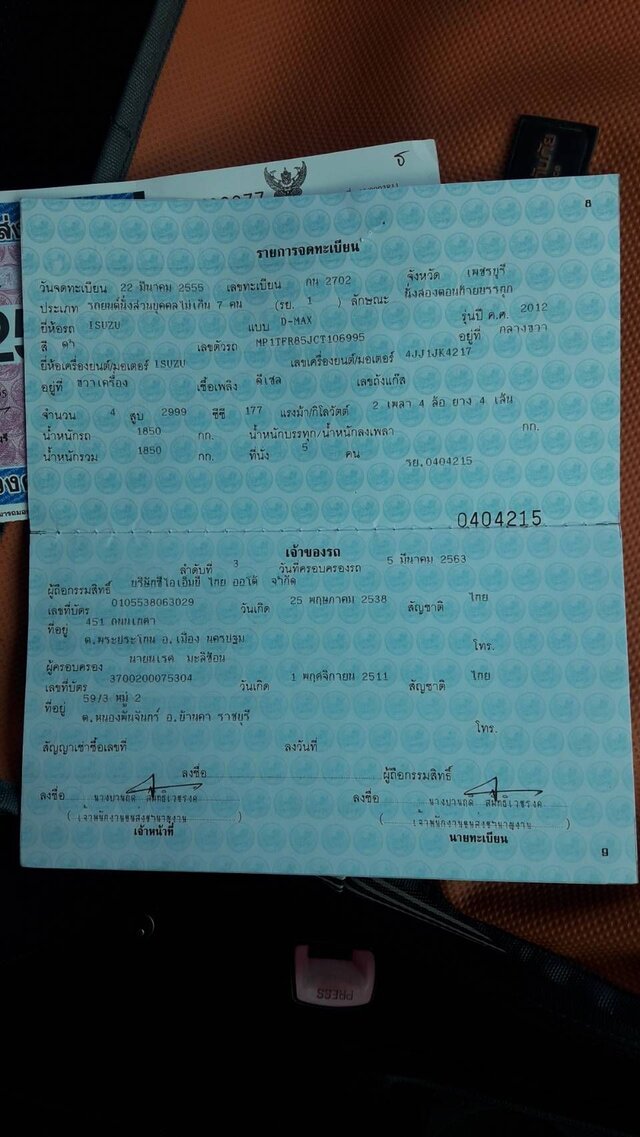 ธ
8
รายการจดทะเบียน
วันจดทะเบียน 22 มีนาคม 2555 เลขทะเบียน กน 2702 จังหวัด เพชรบุรี
ประเภท รถยนต์นั่งส่วนบุคคลไม่เกิน 7 คน (รย. 1 ) ลักษณะ นั่งสองตอนท้ายบรรทุก
ยี่ห้อรถ ISUZU แบบ D-MAX รุ่นปี ค.ศ. 2012
สี ดำ เลขตัวรถ MP1TFR85JCT106995 อยู่ที่ กลางขวา
ยี่ห้อเครื่องยนต์/มอเตอร์ ISUZU เลขเครื่องยนต์/มอเตอร์ 4JJ1JK4217
อยู่ที่ ขวาเครื่อง เชื้อเพลิง ดีเซล เลขถังแก๊ส
จำนวน 4 สูบ 2999 ซีซี 177 แรงม้า/กิโลวัตต์ 2 เพลา 4 ล้อ ยาง 4 เส้น
น้ำหนักรถ 1850 กก. น้ำหนักบรรทุก/น้ำหนักลงเพลา กก.
น้ำหนักรวม 1850 กก. ที่นั่ง 5 คน
รย.0404215
0404215
เจ้าของรถ
ลำดับที่ 3 วันที่ครอบครองรถ 5 มีนาคม 2563
ผู้ถือกรรมสิทธิ์ บริษัทซีไอเอ็มบี ไทย ออโต้ จำกัด
เลขที่บัตร 0105538063029 วันเกิด 25 พฤษภาคม 2538 สัญชาติ ไทย
ที่อยู่ 451
ต.พระประโทน อ.เมือง นครปฐม โทร.
ผู้ครอบครอง นายนเรศ
เลขที่บัตร 3700200075304 วันเกิด 1 พฤศจิกายน 2511 สัญชาติ ไทย
ที่อยู่ 59/3 หมู่ 2
ต.หนองพันจันทร์ อ.บ้านคา ราชบุรี โทร.
สัญญาเช่าซื้อเลขที่ ลงวันที่
ลงชื่อ ผู้ถือกรรมสิทธิ์
ลงชื่อ ลงชื่อ
(เจ้าพนักงานขนส่งชำนาญงาน) (เจ้าพนักงานขนส่งชำนาญงาน)
เจ้าหน้าที่ นายทะเบียน
9
PRESS